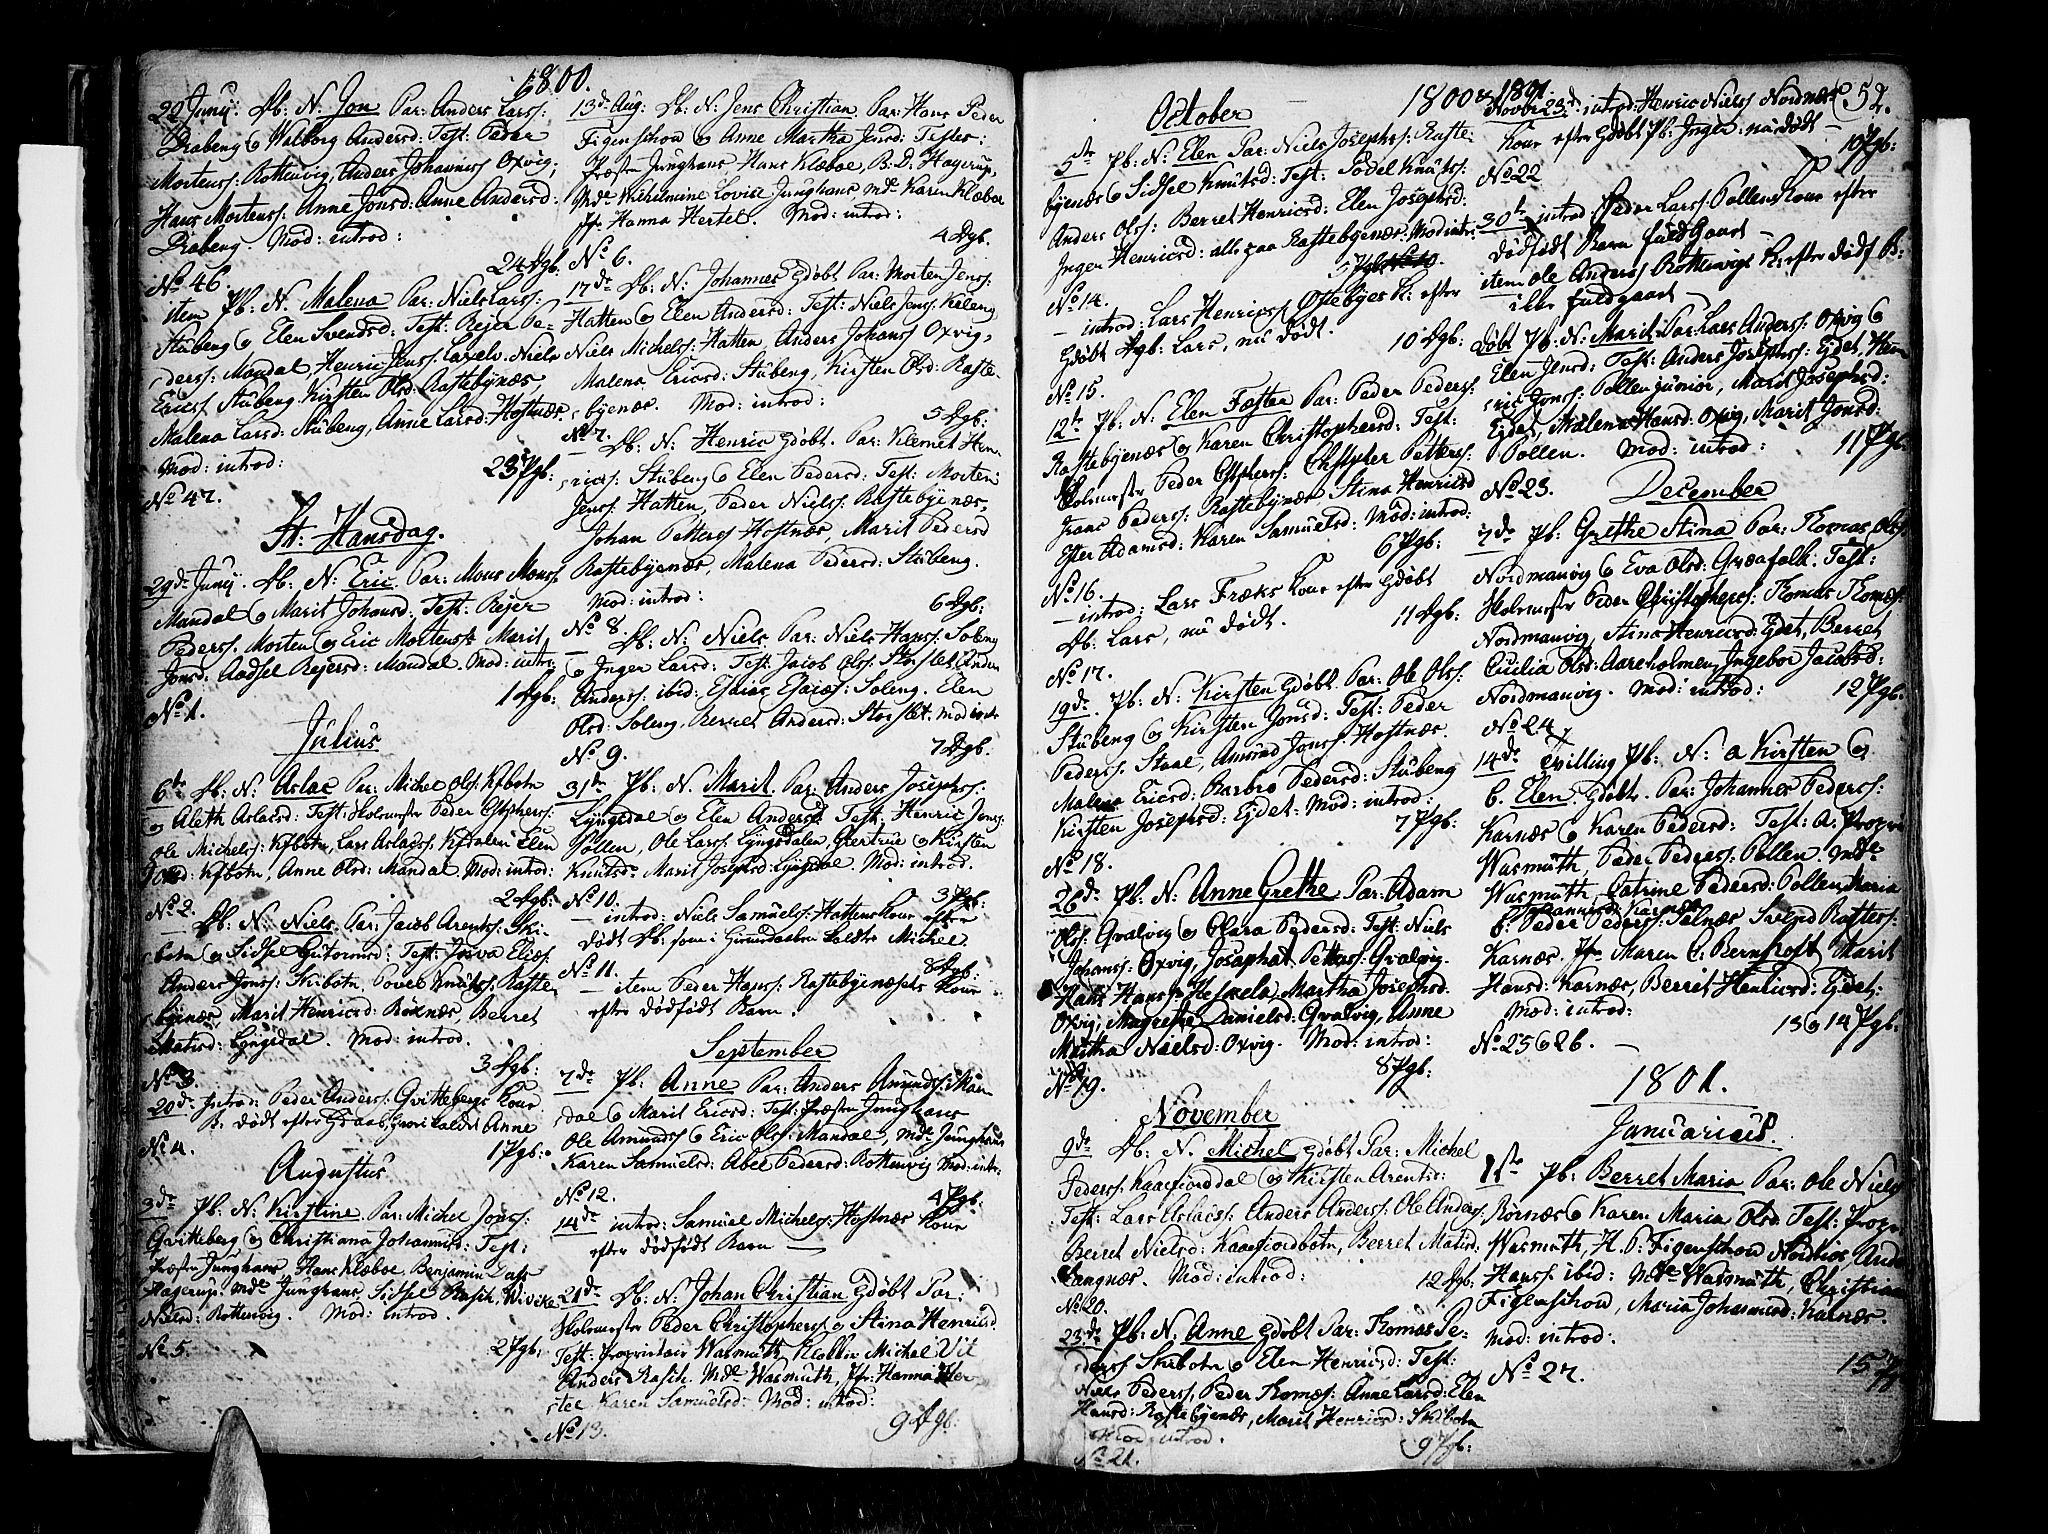 1800.
22 Junij. Db: N: Jon Par: Anders Larss:
Draberg & Walborg Andersd: Test: Peder
Mortenss: Rottenvig, Anders Johanniss Oxvig,
Hans Mortenss: Anne Jonsd: Anne Andersd:
Draberg. Mod: introd:
24 Dgb.
No 46.
item Pb: N. Malena Par: Niels Larss:
Stubeng & Elen Svendsd: Test: Rejer Pe-
derss: Mandal, Henric Jenss: Niels
Ericss Stubeng. Kirsten Olsd: Rastebynæs,
Malena Larsd: Stubeng, Anne Larsd: Hostnæs
Mod: introd:
23 Pgb:
No 47.
St: Hansdag.
29de Junij. Db: N: Eric Par: Mons Monss:
Mandal & Marit Johansd: Test: Rejer
Pederss. Morten & Eric Mortenss: Marit
Jonsd: Aadsel Rejersd: Mandal Mod: intr:
1 Dgb:
No 1.
Julius
6te Db: N: Aslac Par: Michel Ols: Kfbotn
& Aleth Aslacsd: Test: Skolemester Peder Chphers:
Ole Michelss: Kfbotn, Lars Aslacss: Kfdalen Elen
Kfbotn, Anne Olsd: Mandal Mod: introd:
2 Dgb:
No 2.
— Db: N: Niels Par: Jacob Arentss: Ski-
botn & Sidsel Gutormsd: Test: Josva Elias:
Anders Jonss: Skibotn, Povel Knutss: Raste-
bynæs, Marit Henricsd: Røxnæs, Berret
Matisd: Lyngsdal. Mod: introd.
3 Dgb:
No 3.
20de Introd: Peder Anderss: Qvitbergs kone
B. død efter Anne
1 Pgb:
No 4.
Augustus
3de Pb: N: Kirstine Par: Michel Jonss:
Qvitteberg & Christiana Johannisd: Test:
Præsten Junghans, Hans Klæboe, Benjamin Dass
Hagerup. Mde Junghans, Sidsel Rasch, Wivike
Nielsd: Rottenvig. Mod: introd.
2 Pgb:
No 5.
13de Aug: Db: N: Jens Christian Par: Hans Peder
Figenschou & Anne Martha Jensd: Testes:
Præsten Junghans, Hans Klæboe, B. D: Hagerup,
Mde Wilhelmine Lovise Junghans, Mde Karen Klæboe
Jfr: Hanna Hertel. Mod: introd:
4 Dgb.
No 6.
17de Db: N: Johannes Gdøbt Par: Morten Jenss:
Hatten & Elen Andersd: Test: Niels Jenss: Kaleng
Niels Michelss: Hatten, Anders Johanss Oxvig,
Malena Ericsd: Stubeng, Kirsten Olsd: Raste-
bynæs. Mod: introd:
5 Dgb:
No 7.
— Db: N: Henric Gdøbt. Par: Klemet Hen-
ricss: Stubeng & Elen Pedersd: Test: Morten
Jenss: Hatten, Peder Nielss: Rastebynæs,
Johan Petterss Hostnæs, Marit Pedersd
Rastebynæs, Malena Pedersd: Stubeng.
Mod: introd:
6 Dgb:
No 8.
— Db: N: Niels Par: Niels Hanss: Soleng
& Inger Larsd: Test: Jacob Olss: Storslet, Anders
Anderss: ibid: Esaias Esaiæss: Soleng. Elen
Olsd: Soleng, Berret Andersd: Storslet. Mod introd
7 Dgb:
No 9.
31te Pb: N. Marit. Par: Anders Josephss:
Lyngsdal & Elen Andersd: Test: Henric Jonss:
Pollen, Ole Larss: Lyngsdalen, Giertrue & Kirsten
Knutsd: Marit Josephsd: Lyngsdal. Mod: introd.
3 Pgb:
No 10.
— introd: Niels Samuelss: Hattens Kone efter
Dødt Db: som i kaldte Michel.
8 Dgb:
No 11.
— item Peder Hanss: Rastebynæsets Kone
efter dødfødt Barn.
September
7de Pb: Anne Par: Anders Amundss: Man-
dal & Marit Ericsd: Test: Præsten Junghans
Ole Amundss & Eric Olss: Mandal, Mde Junghans
Karen Samuelsd: Abel Pedersd: Rottenvig Mod: intr:
4 Pgb:
No 12.
14de introd: Samuel Michelss: Hostnæs Kone
efter dødfødt Barn —
21de Db: N: Johan Christian Gdøbt Par:
Skolemester Peder Christopherss & Stina Henricsd
Test: Proprietair Wasmuth, Klokker Michel Vit
Anders Rasch. Mde Wasmuth, Jfr: Hanna Her-
tel Karen Samuelsd: Mod: introd:
9 Dgb:
No 13.
1800 & 1801
52.
October
5te Pb: N: Elen Par: Niels Josephss: Raste-
bynæs & Sidsel Knutsd: Test: Povel Knutss:
Anders Olss: Berret Henricsd: Elen Josephsd:
Inger Henricsd: alle paa Rastebynæs. Mod intr:
5 Pgb:
No 14.
— introd: Lars Henricss Ostebyes K: efter
Gdøbt Dgb: Lars, nu dødt.
10 Dgb:
No 15.
12te Pb: N. Elen Fæster Par: Peder Pederss:
Rastebynæs & Karen Christophersd: Test:
Skolemester Peder Chphers: Chstpher Petterss:
Frans Pederss: Rastebynæs Stina Henricsd
Ester Adamsd: Karen Samuelsd: Mod: introd:
6 Pgb:
No 16.
— introd: Lars Fræks kone efter Gdøbt
Db: Lars, nu dødt.
11 Dgb:
No 17.
19de. Pb: N: Kirsten Gdøbt Par: Ole Olss:
Stubeng & Kirsten Jonsd: Test: Peder
Pederss: Staal, Amund Jonss: Hostnæs.
Malena Ericsd: Barbro Pedersd: Stubeng
Kirsten Josephsd: Ejdet: Mod: introd:
7 Pgb:
No 18.
26de Pb: N: Anne Grethe Par: Adam
Olss: Qvalvig & Clara Pedersd: Test: Niels
Johanss: Oxvig, Josaphat Petterss: Qvalvig.
Hans Hanss: Heskela, Martha Josephsd.
Oxvig, Magrethe Danielsd: Qvalvig, Anne
Martha Nielsd: Oxvig. Mod: introd:
8 Pgb:
No 19.
November
9de Db: N. Michel Gdøbt Par: Michel
Pederss: Kaafiorddal & Kirsten Arentsd:
Test: Lars Aslacss: Anders Anderss: Ole Anderss:
Berret Nielsd: Kaafiordbotn, Berret Matisd:
Langnæs. Mod: introd:
12 Dgb:
No 20.
23de Pb: N: Anne Gdøbt Par: Thomas Pe-
derss Skibotn & Elen Henricsd: Test:
Niels Pederss, Peder Thomæs: Anne Larsd: Elen
Hansd: Rastebynæs, Marit Henricsd: Skibotn
Mod: introd.
9 Pgb:
No 21.
Novbr 23de: introd: Henric Nielss Nordnæs
kone efter Gdøbt Pb: Inger: nu dødt —
10 Pgb:
No 22
30te introd: Peder Larss Pollens Kone efter
dødfødt Barn fuldgaaet —
item Ole Anderss Rottevigs K: efter dødf B:
ikke fuldgaaet —
døbt Pb: N: Marit. Par: Lars Anderss: Oxvig &
Elen Jensd: Test: Anders Josephss: Ejdet, Hen-
ric Jonss: Pollen junior, Marit Josephsd:
Ejdet, Malena Hansd: Oxvig, Marit Jonsd:
Pollen. Mod: introd:
11 Pgb:
No 23.
December
7de Pb: Grethe Stina Par: Thomas Olss:
Nordmanvig & Eva Olsd: Græafolk. Test:
Skolemester Peder Christopherss: Thomas Thomæs:
Nordmanvig, Stina Henricsd: Ejdet, Berret
Cicilia Olsd: Aareholmen, Ingebor Jacobsd:
Nordmanvig. Mod: introd:
12 Pgb:
No 24
14de Tvilling Pb: N: a Kirsten &
b. Elen Gdøbte. Par: Johannes Pederss:
Karnæs & Karen Pedersd: Test: a. Propr:
Wasmuth, Peder Pederss: Pollen. Mde
Wasmuth, Catrine Pedersd: Pollen, Maria
Johannisd: Karnæs.
b. Peder Pederss: Salnæs Svend Rasterss:
Karnæs. Jfr. Maren C: Bernhoft Marit
Hansd: Karnæs, Berrit Henricsd: Ejdet:
Mod: introd:
13 & 14 Pgb:
No 25 & 26. —
1801.
Januarius.
1ste Pb: Berret Maria Par: Ole Niels
Rornæs & Karen Maria Olsd: Test: Propr
Wasmuth, H. P: Figenschou And
Hanss: ibid: Mde Wasmuth, Christiana
Figenschou, Maria Johannisd: Karnæs.
Mod: introd:.
15 Pgb
No 27.